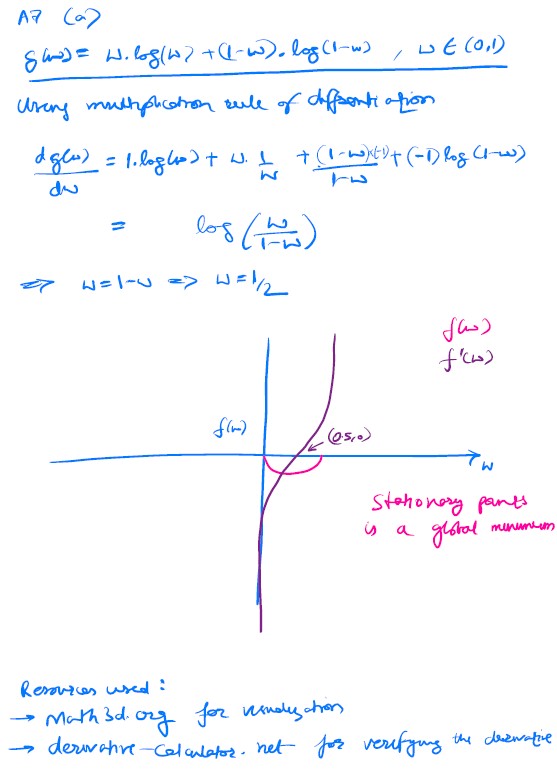 A7 (a)
g(w) = w.log(w) + (1-w).log(1-w) , w ∈ (0,1)
Using multiplication rule of differentiation
dg(w)/dw = 1.log(w) + w. 1/w + (1-w)×(-1)/1-w + (-1) log (1-w)
= log (w/1-w)
⇒ w=1-w ⇒ w=1/2
f(w)
f'(w)
f(w)
(0.5,0)
w
Stationery points
is a global minimum
Resources used:
→ Math3d.org for visualization
→ derivative-calculator.net for verifying the derivative